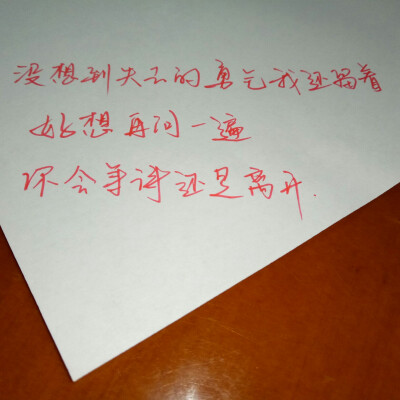 没想到失去的勇气我还留着
好想再问一遍
你会等待还是离开.